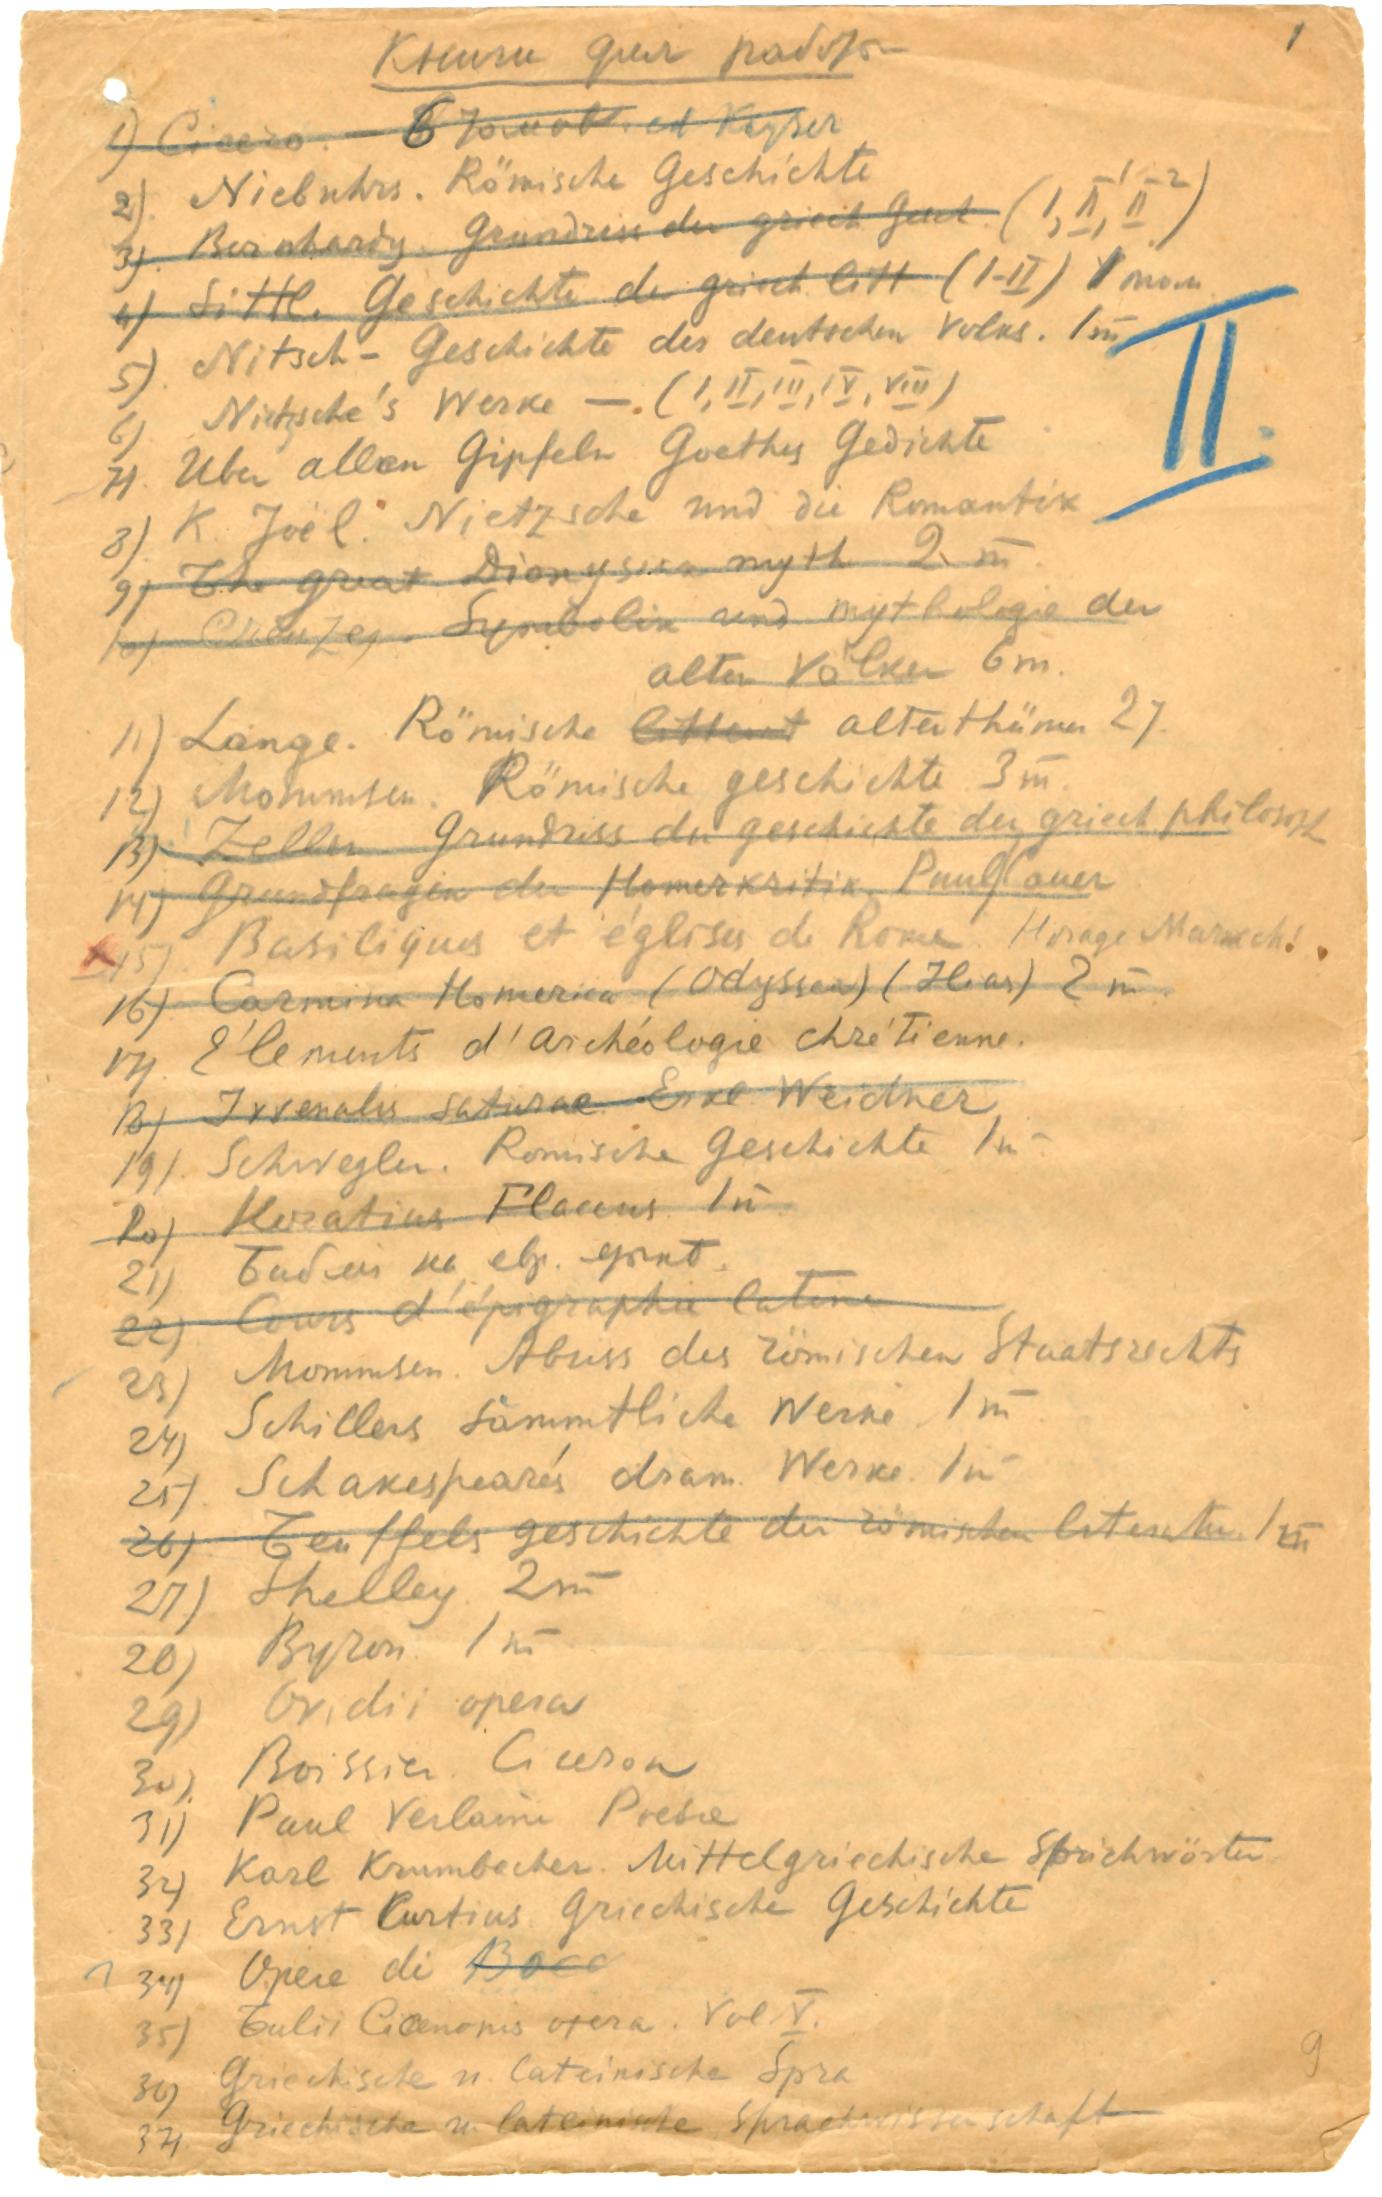 Книги для работы
1
1) Cicero. — 6 томов. ed Kayser
2). Niebuhrs. Römische Geschichte
3). Bernhardy. Grundriss der griech Gesch. (I, II¹, II²)
4) Sittl. Geschichte der griech litt (I-II) 1 том
5). Nitsch - Geschichte des deutschen Volks. 1 т
II.
6) Nietzsche's Werke —. (I, II, III, IV, VIII)
7). Uber allen Gipfeln Goethes Gedichte
8). K. Joël. Nietzsche und die Romantik
9) The great Dionysiak myth 2 т.
10) Creuzer. Symbolik und mythologie der
alten Völker 6 т.
11) Lange. Römische litterat alterthümer 2 т.
12) Mommsen. Römische geschichte 3 т.
13) Zeller Grundriss der geschichte der griech philosoph
14) Grundfragen der Homerkritik. Paul Cauer
15) Basiliques et églises de Rome. Horace Marucchi.
16) Carmina Homerica (Odyssea) (Ilias) 2 т.
17). Éléments d'archéologie chrétienne.
18) Iuvenalis saturae. Erkl Weidner
19). Schwegler. Romische Geschichte 1 т
20) Horatius Flaccus. 1 т.
21) Библия на евр.
22) Cours d'épigraphie latine
23) Mommsen. Abriss des römischen Staatsrechts
24) Schillers sämmtliche Werke 1 т
25). Schakespeare's dram. Werke. 1 т
26) Teuffels geschichte der römischen literatur. 1 т
27) Shelley 2 т
28) Byron. 1 т
29) Ovidii opera
30). Boissier. Ciceron
31) Paul Verlaine Poesie
32) Karl Krumbacher. Mittelgriechische Sprichwörter
33) Ernst Curtius Griechische Geschichte
34) Opere di Bocc
35) Tulii Ciceronis opera. Vol V.
36) Griechische u. lateinische Spra
37). Griechische u. lateinische Sprachwissenschaft
9